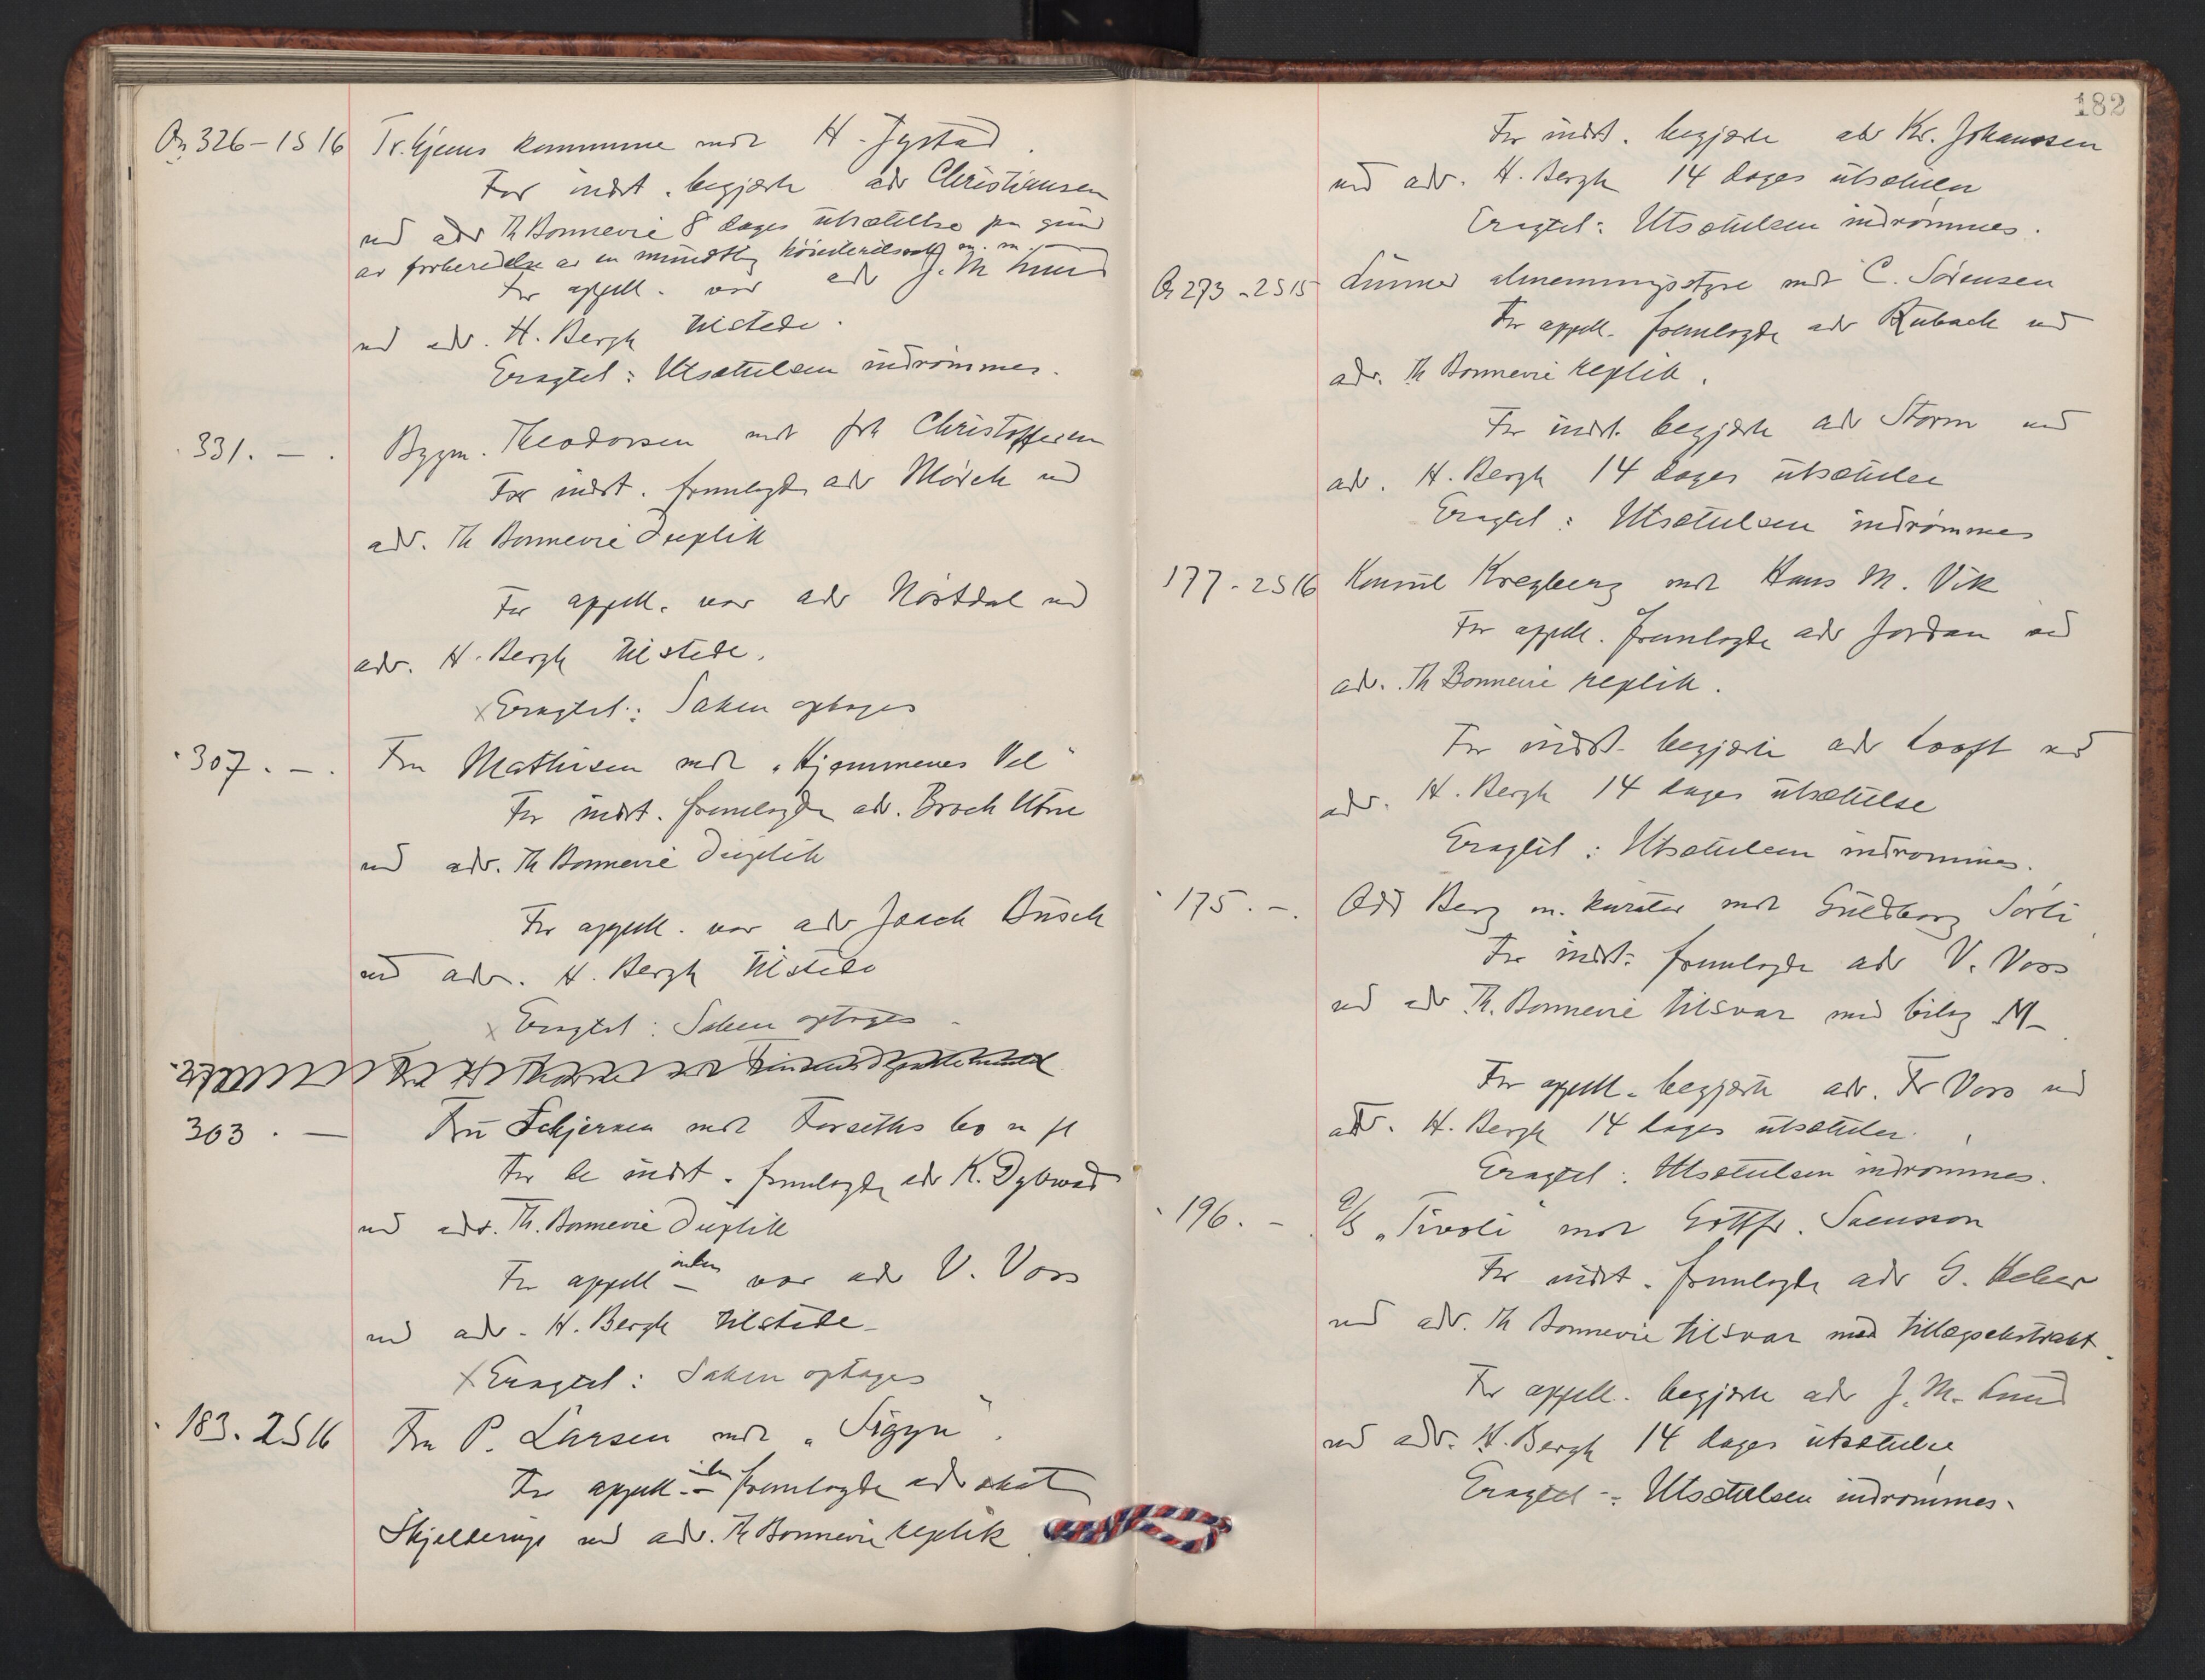 Or 326 – 1 S 16 Tr.hjems kommune mot H. Jystad.
For indst. begjærte adv Christiansen
ved adv Th Bonnevie 8 dages utsættelse pa grund
av forberedelse av en mundtlig høiesteretssak m. m.
For appell. var adv J. M Lund
ved adv. H. Bergh tilstede.
Eragtet: Utsættelsen indrømmes.
331. – . Bygm. Theodorsen mot frk Christoffersen
For indst. fremlagde adv Mørch ved
adv. Th Bonnevie duplik
For appell. var adv Nøstdal ved
adv. H. Bergh tilstede.
x Eragtet: Saken optages
307. – . Fru Mathisen mot „Hjemmenes Vel"
For indst. fremlagde adv. Broch Utne
ved adv. Th Bonnevie duplik
For appell. var adv Joach Busch
ved adv. H. Bergh tilstede
x Eragtet: Saken optages
Finansdepartementet
303 . – Fru Schjernen mot Forseths bo m fl
For de indst. fremlagde adv K. Dybwad
ved adv. Th. Bonnevie duplik
For appell–inden var adv V. Voss
ved adv. H. Bergh tilstede
x Eragtet: Saken optages
183. 2 S 16 Fru P. Larsen mot „Sigyn".
For appell.–inden fremlagde advokat
Skjelderup ved adv. Th Bonnevie replik
182
For indst. begjærte adv Kr. Johanssen
ved adv. H. Bergh 14 dages utsættelse
Eragtet: Utsættelsen indrømmes.
Or 273 - 2 S 15 Lunner almenningsstyre mot C. Sørensen
For appell. fremlagde adv Rubach ved
adv. Th Bonnevie replik.
For indst. begjærte adv Storm ved
adv. H. Bergh 14 dages utsættelse
Eragtet: Utsættelsen indrømmes
177 - 2 S 16 Konsul Kreyberg mot Hans M. Vik
For appell. fremlagde adv Jordan ved
adv. Th Bonnevie replik.
For indst. begjærte adv Looft ved
adv. H. Bergh 14 dages utsættelse
Eragtet: Utsættelsen indrømmes.
175. – . Odd Berg m. kurator mot Guldborg Sørli
For indst. fremlagde adv V. Voss
ved adv Th. Bonnevie tilsvar med bilag M
For appell. begjærte adv. Fr Voss ved
adv. H. Bergh 14 dages utsættelse.
Eragtet: Utsættelsen indrømmes.
196. – . A/S „Tivoli" mot Gottfr. Svensson
For indst. fremlagde adv G. Heber
ved adv. Th Bonnevie tilsvar med tillægsekstrakt.
For appell. begjærte adv J. M. Lund
ved adv. H. Bergh 14 dages utsættelse
Eragtet: Utsættelsen indrømmes.